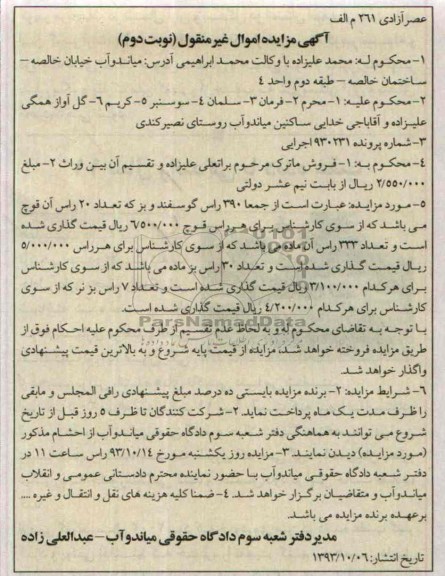 عصرآزادی ۲۶۱ م الف
آگهی مزایده اموال غیر منقول (نوبت دوم)
۱- محکوم له: محمد علیزاده با وکالت محمد ابراهیمی آدرس: میاندوآب خیابان خالصه -
ساختمان خالصه - طبقه دوم واحد ۴
۲- محکوم علیه: ۱- محرم ۲- فرمان ۳- سلمان ۴- سوسنبر ۵- کریم ۶- گل آواز همگی
علیزاده و آقاباجی خدایی ساکنین میاندوآب روستای نصیرکندی
۳- شماره پرونده ۹۳۰۲۳۱ اجرایی
۴- محکوم به: ۱- فروش ماترک مرحوم براتعلی علیزاده و تقسیم آن بین وراث ۲- مبلغ
۲/۵۵۰/۰۰۰ ریال از بابت نیم عشر دولتی
۵- مورد مزایده: عبارت است از جمعا ۳۹۰ راس گوسفند و بز که تعداد ۲۰ راس آن قوچ
می باشد که از سوی کارشناس برای هر راس قوچ ۶/۵۰۰/۰۰۰ ریال قیمت گذاری شده
است و تعداد ۳۳۳ راس آن ماده می باشد که از سوی کارشناس برای هر راس ۵/۰۰۰/۰۰۰
ریال قیمت گذاری شده است و تعداد ۳۰ راس بز ماده می باشد که از سوی کارشناس
برای هر کدام ۳/۱۰۰/۰۰۰ ریال قیمت گذاری شده است و تعداد ۷ راس بز نر که از سوی
کارشناس برای هر کدام ۴/۲۰۰/۰۰۰ ریال قیمت گذاری شده است.
با توجه به تقاضای محکوم له و به لحاظ عدم تقسیم از طرف محکوم علیه احکام فوق از
طریق مزایده فروخته خواهد شد. مزایده از قیمت پایه شروع و به بالاترین قیمت پیشنهادی
واگذار خواهد شد.
۶- شرایط مزایده: ۲- برنده مزایده بایستی ده درصد مبلغ پیشنهادی رافی المجلس و مابقی
را ظرف مدت یک ماه پرداخت نماید. ۲- شرکت کنندگان تا ظرف ۵ روز قبل از تاریخ
شروع می توانند به هماهنگی دفتر شعبه سوم دادگاه حقوقی میاندوآب از احشام مذکور
(مورد مزایده) دیدن نمایند. ۳- مزایده روز یکشنبه مورخ ۹۳/۱۰/۱۴ راس ساعت ۱۱ در
دفتر شعبه دادگاه حقوقی میاندوآب با حضور نماینده محترم دادستانی عمومی و انقلاب
میاندوآب و متقاضیان برگزار خواهد شد. ۴- ضمنا کلیه هزینه های نقل و انتقال و غیره ....
بر عهده برنده مزایده می باشد.
مدیر دفتر شعبه سوم دادگاه حقوقی میاندوآب - عبدالعلی زاده
تاریخ انتشار: ۱۳۹۳/۱۰/۰۶
ParsNamadData